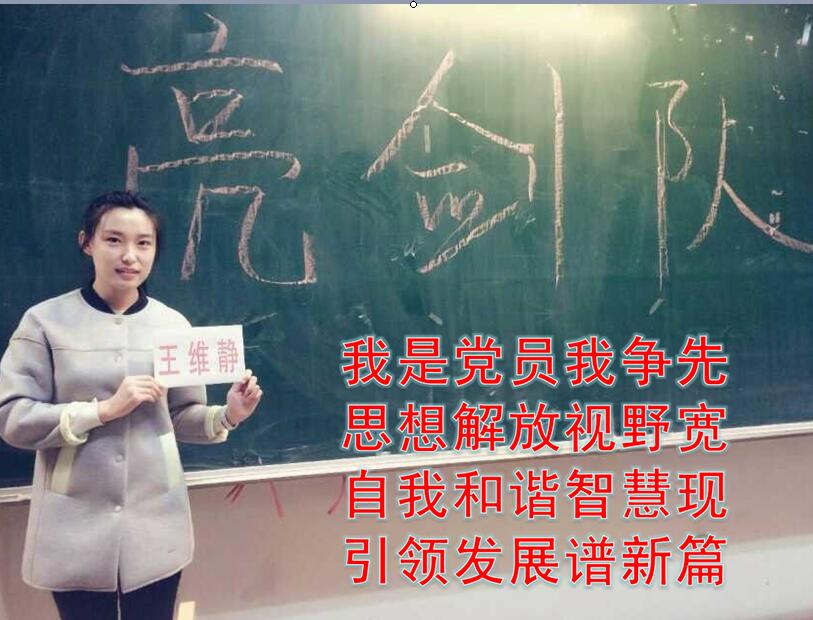 亮剑队
王维静
我是党员我争先
思想解放视野宽
自我和谐智慧现
引领发展谱新篇